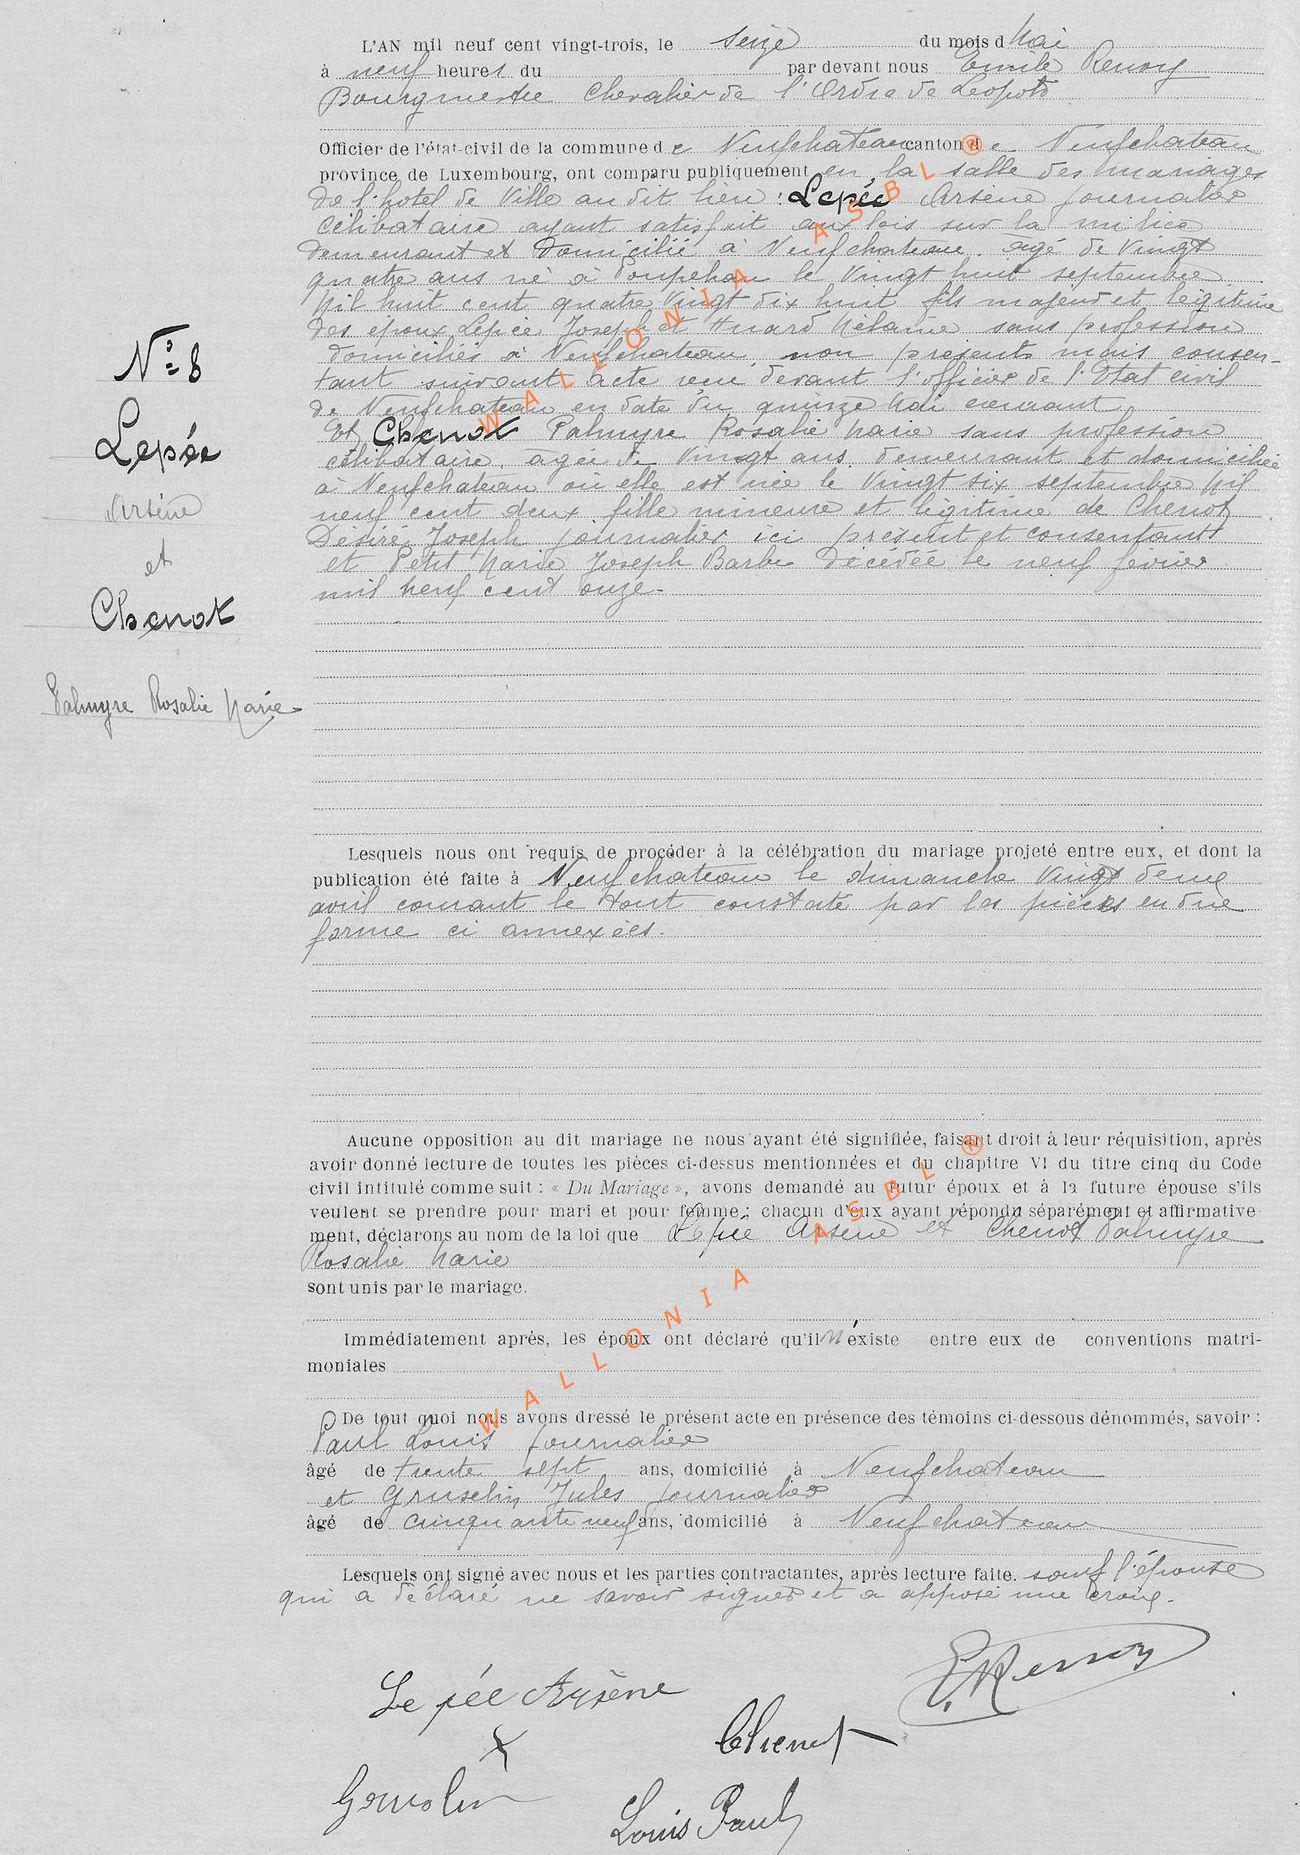 L'AN mil neuf cent vingt-trois, le seize du mois d Mai
à neuf heures du par devant nous Emile
Bourgmestre Chevalier de l'Ordre de Léopold
Officier de l'état-civil de la commune de Neufchateau canton de Neufchateau
province de Luxembourg, ont comparu publiquement en la salle des mariages
de l'hotel de Ville au dit lieu : Lepée Arsène journalier
célibataire ayant satisfait aux lois sur la milice
demeurant et domicilié à Neufchateau, agé de Vingt
quatre ans né à Poupehan le Vingt huit septembre
Mil huit cent quatre Vingt dix huit, fils majeur et légitime
des epoux Lepée Joseph et Huard Mélanie sans profession
domiciliés à Neufchateau, non présents mais consen-
tant suivant acte reçu devant l'officier de l'Etat civil
de Neufchateau en date du quinze Mai courant
Et Chenot Palmyre Rosalie Marie sans profession
célibataire, agée de Vingt ans, demeurant et domiciliée
à Neufchateau où elle est née le Vingt six septembre Mil
neuf cent deux, fille mineure et légitime de Chenot
Désiré Joseph journalier ici présent et consentant
et Petit Marie Joseph Barbe décédée le neuf février
mil neuf cent onze.-
N° 8
Lepée
Arsène
et
Chenot
Palmyre Rosalie Marie
Lesquels nous ont requis de procéder à la célébration du mariage projeté entre eux, et dont la
publication été faite à Neufchateau le dimanche Vingt deux
avril courant le tout constaté par les pièces en due
forme ci annexées.
Aucune opposition au dit mariage ne nous ayant été signifiée, faisant droit à leur réquisition, après
avoir donné lecture de toutes les pièces ci-dessus mentionnées et du chapitre VI du titre cinq du Code
civil intitulé comme suit : « Du Mariage », avons demandé au futur époux et à la future épouse s'ils
veulent se prendre pour mari et pour femme ; chacun d'eux ayant répondu séparément et affirmative
ment, déclarons au nom de la loi que Lepée Arsène et Chenot Palmyre
Rosalie Marie
sont unis par le mariage.
Immédiatement après, les époux ont déclaré qu'il N'existe entre eux de conventions matri-
moniales
De tout quoi nous avons dressé le présent acte en présence des témoins ci-dessous dénommés, savoir :
Paul Louis journalier
âgé de trente sept ans, domicilié à Neufchateau
et Gruselin Jules journalier
âgé de cinquante neuf ans, domicilié à Neufchateau
Lesquels ont signé avec nous et les parties contractantes, après lecture faite. sauf l'épouse
qui a déclaré ne savoir signer et a apposé une croix.
Lepée Arsène
X
Chenot
Louis Paul
WALLONIA ASBL ®
WALLONIA ASBL ®